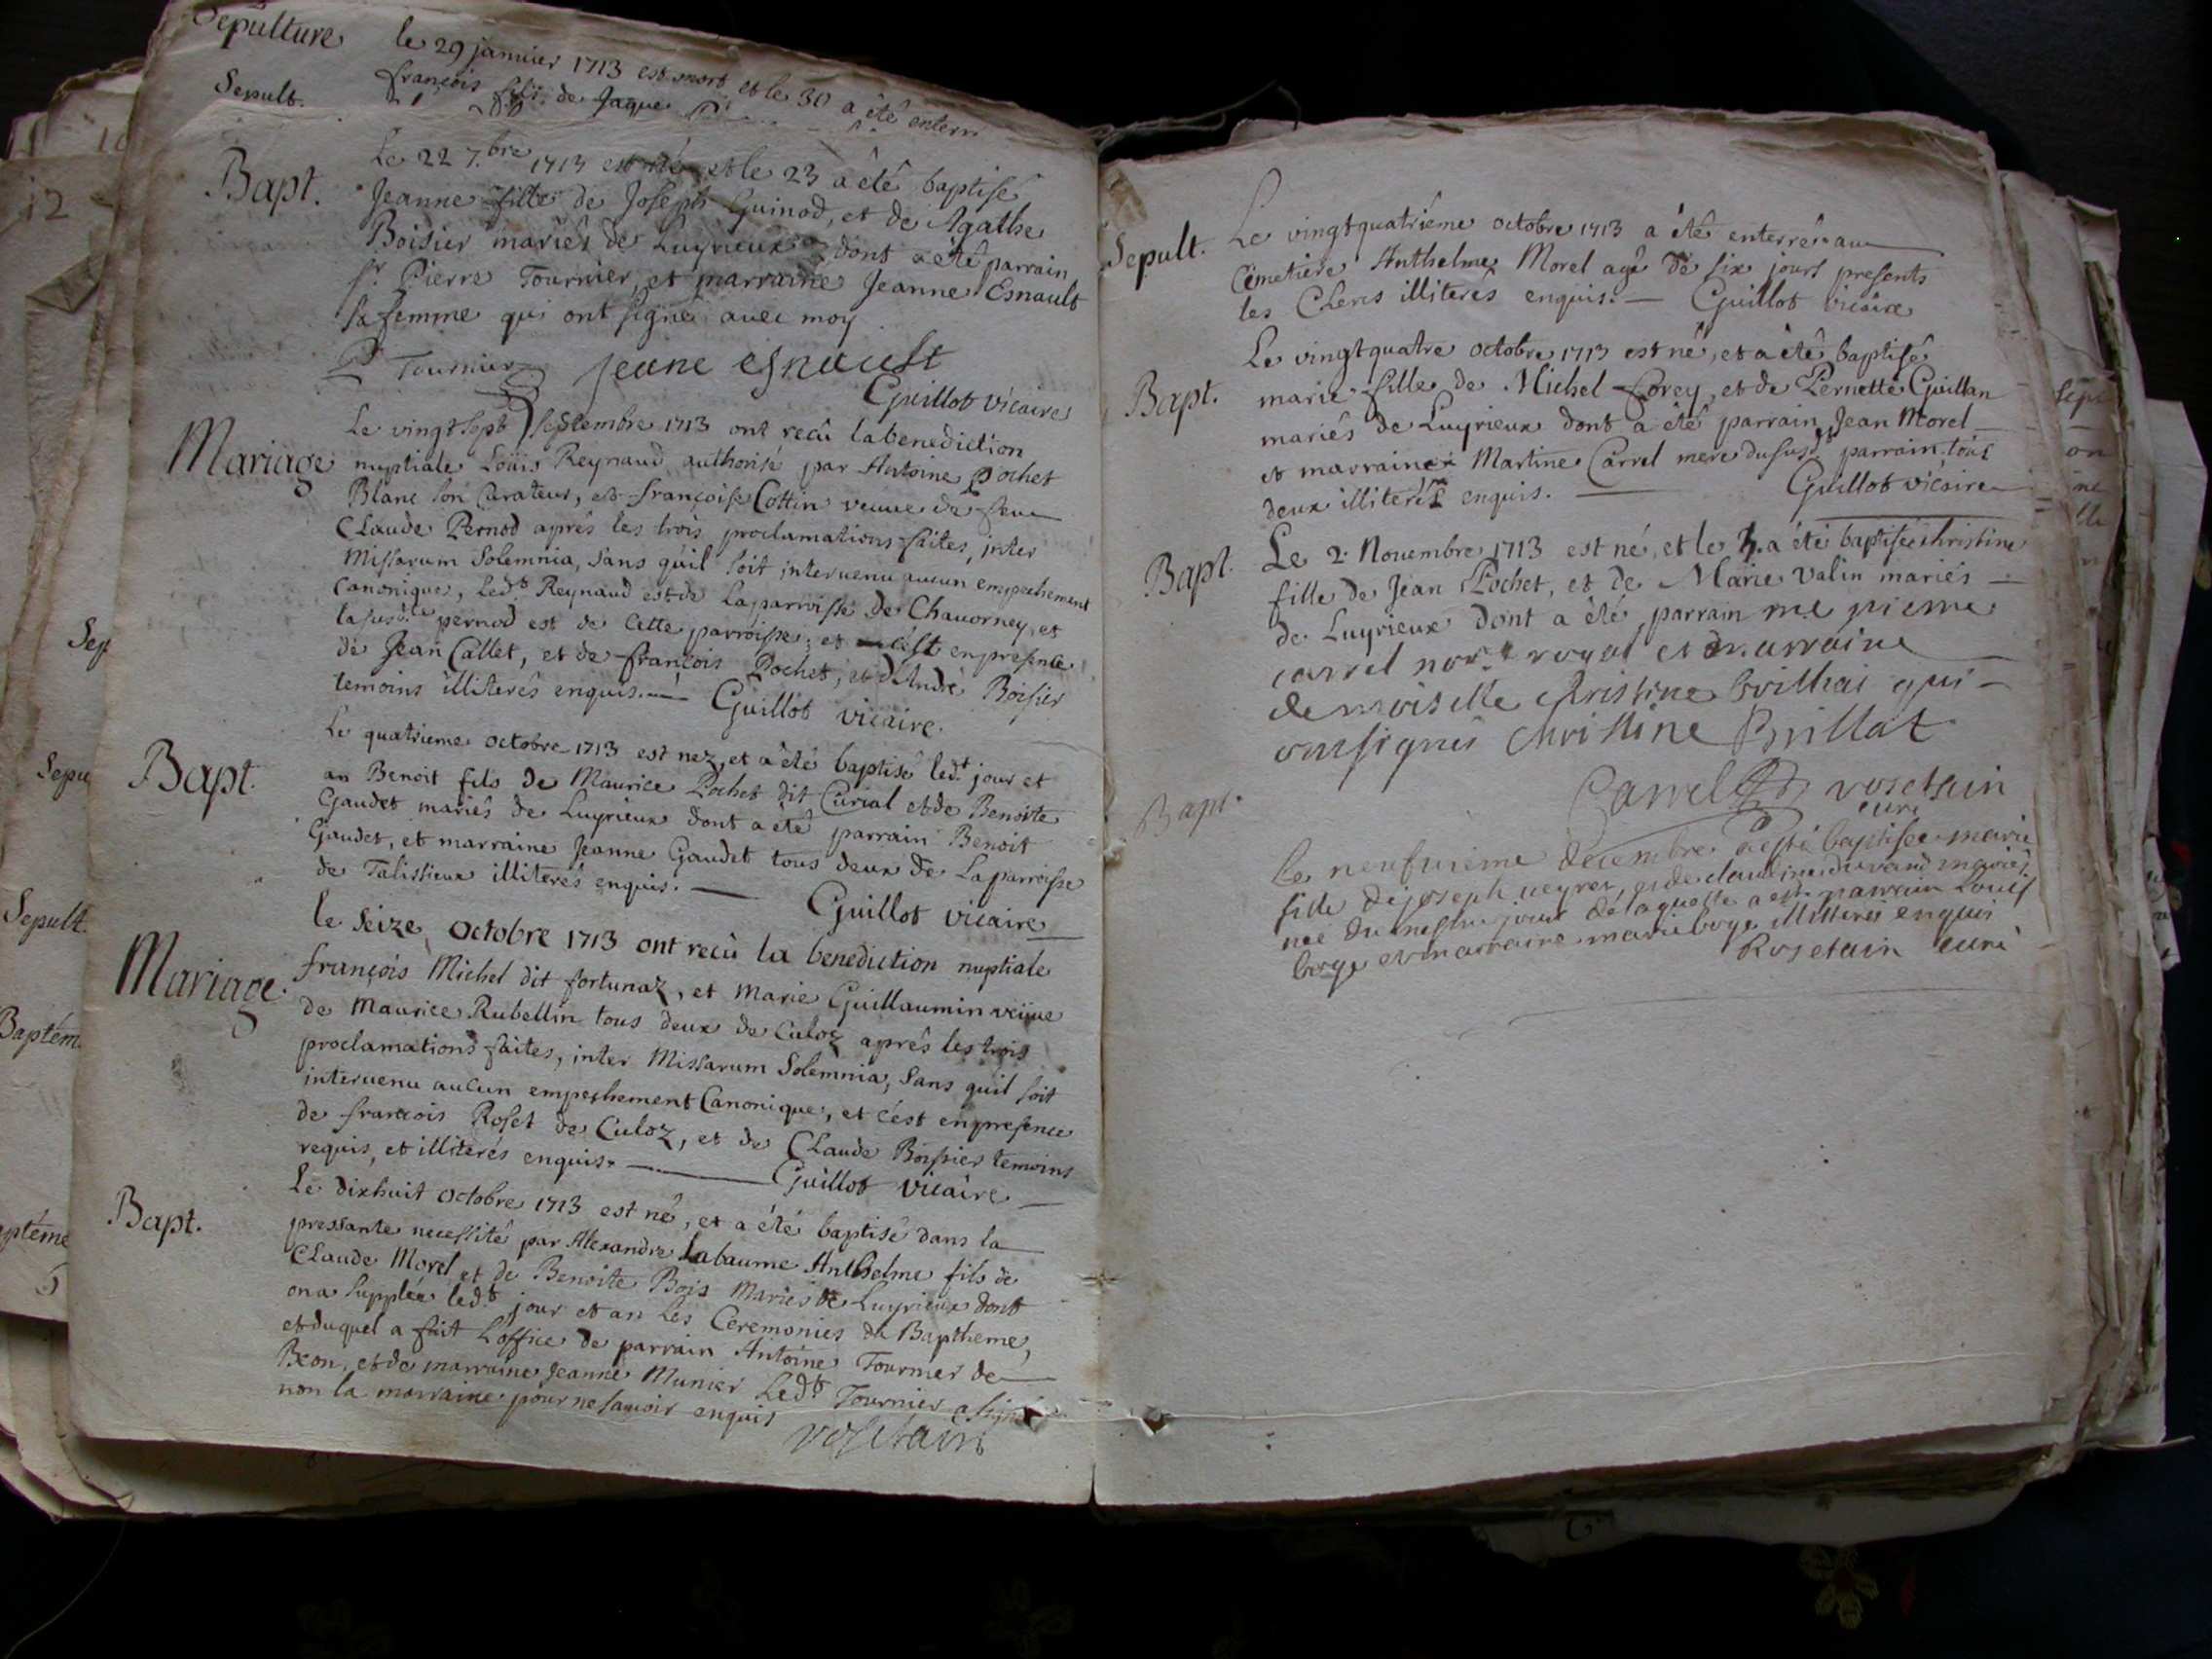 Sepulture le 29 janvier 1713 est mort et le 30 a été enterré
Sepult. françois fils de Jaque
Bapt. Le 22 7.bre 1713 est né et le 23 a été baptisé
Jeanne fille de Joseph Guinod, et de Agathe
Boisier mariés de Luyrieux dont a été parrain
sr. Pierre Tournier, et marraine Jeanne Esnault
sa femme qui ont signé avec moy
P Tournier jeane esnault
Guillot vicaire
Le vingt sept septembre 1713 ont reçû la benediction
Mariage nuptiale Loüis Reynaud authorisé par Antoine Pochet
Blanc son Curateur, et françoise Cottin veuve de feu
Claude Pernod aprés les trois proclamations faites, inter
Missarum Solemnia, sans qu'il soit intervenu aucun empechement
Canonique, Led.t Reynaud est de la parroisse de Chavorney, et
la susd.te pernod est de cette parroisse; et c'est en presence
de Jean Callet, et de françois Pochet, et d'André Boisier
temoins illiterés enquis. — Guillot vicaire.
Le quatrieme octobre 1713 est nez, et a été baptisé led.t jour et
Bapt. an Benoit fils de Maurice Pochet dit Curial et de Benoite
Gaudet mariés de Luyrieux dont a été parrain Benoit
Gaudet, et marraine Jeanne Gaudet tous deux de La parroisse
de Talissieux illiterés enquis. — Guillot vicaire
le seize octobre 1713 ont reçû la benediction nuptiale
Mariage. françois Michel dit fortunaz, et Marie Guillaumin veüve
de Maurice Rubellin tous deux de Culoz aprés les trois
proclamations faites, inter Missarum Solemnia, sans quil soit
intervenu aucun empeschement Canonique, et c'est en presence
de françois Roset de Culoz, et de Claude Boissier temoins
requis, et illiterés enquis. — Guillot vicaire —
Bapt. Le dixhuit octobre 1713 est né, et a été baptisé dans la
pressante necessité par Alexandre Labaume Anthelme fils de
Claude Morel et de Benoite Bois Mariés de Luyrieux dont
on a supplée led.t jour et an les Ceremonies du Baptheme,
et duquel a fait L'office de parrain Antoine Tournier de
Beon, et de marraine Jeanne Munier Led.t Tournier a signé
non la marraine pour ne savoir enquis
Rosetain
Sepult. Le vingtquatriéme octobre 1713 a été enterré au
Cimetiere Anthelme Morel agé de six jours presents
les Clercs illiterés enquis. — Guillot vicaire
Le vingtquatre octobre 1713 est né, et a été baptisé
Bapt. marie fille de Michel Corey, et de Pernette Guillan
mariés de Luyrieux dont a été parrain Jean Morel
et marraine Martine Carrel mere du susd.t parrain tous
deux illiterés enquis. — Guillot vicaire
Bapt. Le 2. Novembre 1713 est né, et le 3. a été baptisée christine
fille de Jean Pochet, et de Marie Valin mariés —
de Luyrieux dont a été parrain me pierre
carrel not.e royal et marraine
demoiselle christine brillat qui —
ont signés Christine Brillat
Carrel Rosetain
curé
Bapt. le neufvieme decembre a esté baptisée marie
fille de joseph neyret, et de claudine durand mariés
née du mesme jour de laquelle a esté parrain Louis
borge et marraine marie borge illitterés enquis
Rosetain curé